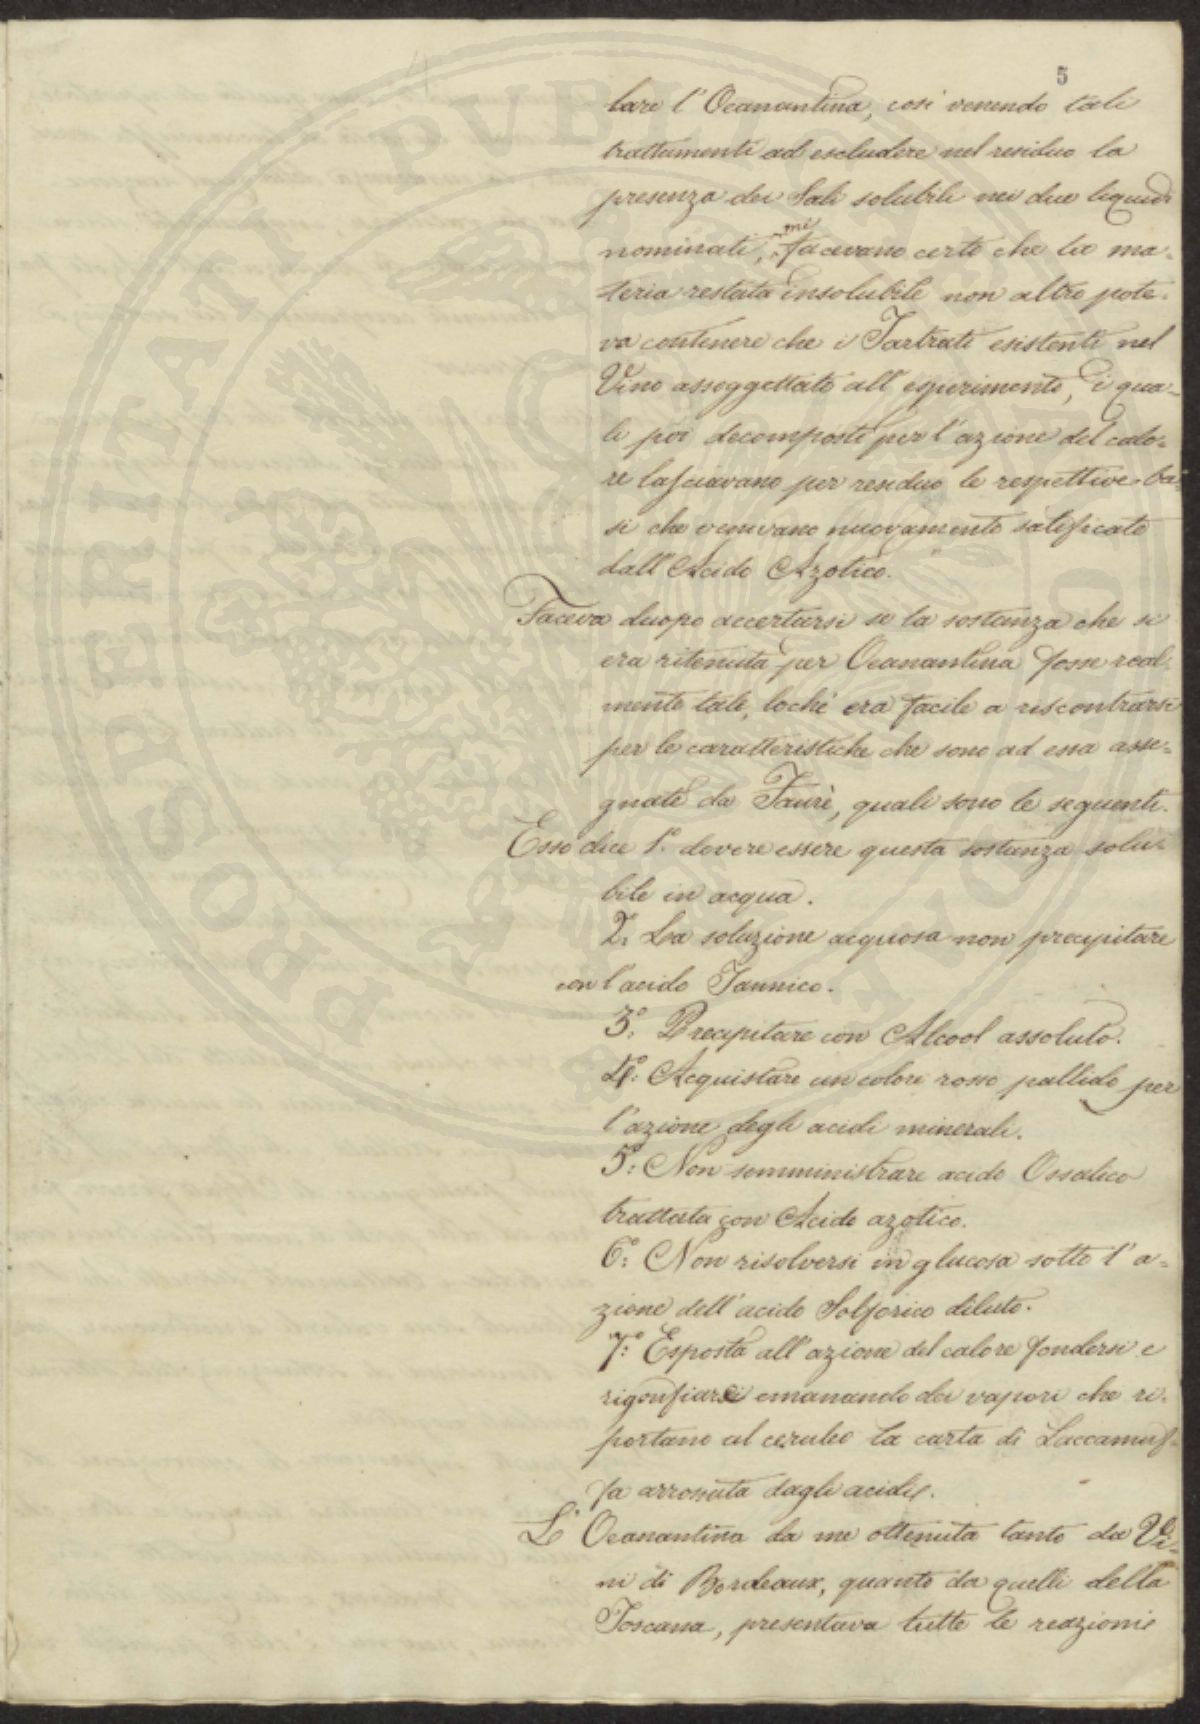 5
lare l'Oeanantina, così venendo tali
trattamenti ad escludere nel residuo la
presenza dei Sali solubili nei due liquidi
nominati, mi facevano certo che la ma-
teria restata insolubile non altro pote-
va contenere che i Tartrati esistenti nel
Vino assoggettato all'esperimento, i qua-
li poi decomposti per l'azione del calo-
re lasciavano per residuo le respettive ba-
si che venivano nuovamente salificate
dall'Acido Azotico.
Faceva duopo accertarsi se la sostanza che si
era ritenuta per Oeanantina fosse real-
mente tale, lochè era facile a riscontrarsi
per le caratteristiche che sono ad essa asse-
gnate da Faurè, quali sono le seguenti.
Esso dice 1.° dovere essere questa sostanza solu-
bile in acqua.
2.° La soluzione acquosa non precipitare
con l'acido Tannico.
3.° Precipitare con Alcool assoluto.
4.° Acquistare un colore rosso pallido per
l'azione degli acidi minerali.
5.° Non somministrare acido Ossalico
trattata con Acido azotico.
6.° Non risolversi in glucosa sotto l'a-
zione dell'acido Solforico diluto.
7.° Esposta all'azione del calore fondersi e
rigonfiarsi emanando dei vapori che ri-
portano al ceruleo la carta di Laccamuf-
fa arrossita dagli acidi.
L'Oeanantina da me ottenuta tanto da Vi-
ni di Bordeaux, quanto da quelli della
Toscana, presentava tutte le reazioni
PROSPERITATI PVBLICAE